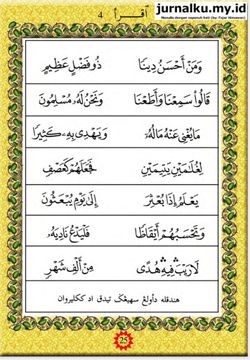 jurnalku.my.id
Menulis dengan sepenuh hati (by: Fajar Himawan)
4 اقرأ
وَمَنْ أَحْسَنُ دِينًا ذُو فَضْلٍ عَظِيمٍ
قَالُوا سَمِعْنَا وَأَطَعْنَا وَنَحْنُ لَهُ مُسْلِمُونَ
مَا يُغْنِي عَنْهُ مَالُهُ وَيَهْدِي بِهِ كَثِيرًا
لِغُلَامَيْنِ يَتِيمَيْنِ فَجَعَلَهُمْ كَعَصْفٍ
يَعْلَمُ إِذَا بُعْثِرَ إِلَى يَوْمِ يُبْعَثُونَ
وَتَحْسَبُهُمْ أَيْقَاظًا فَلْيَدْعُ نَادِيَهُ
لَا رَيْبَ فِيهِ هُدًى مِنْ أَلْفِ شَهْرٍ
هندقله دأولڠ سهيڠڬ تيدق اد ككليروان
25